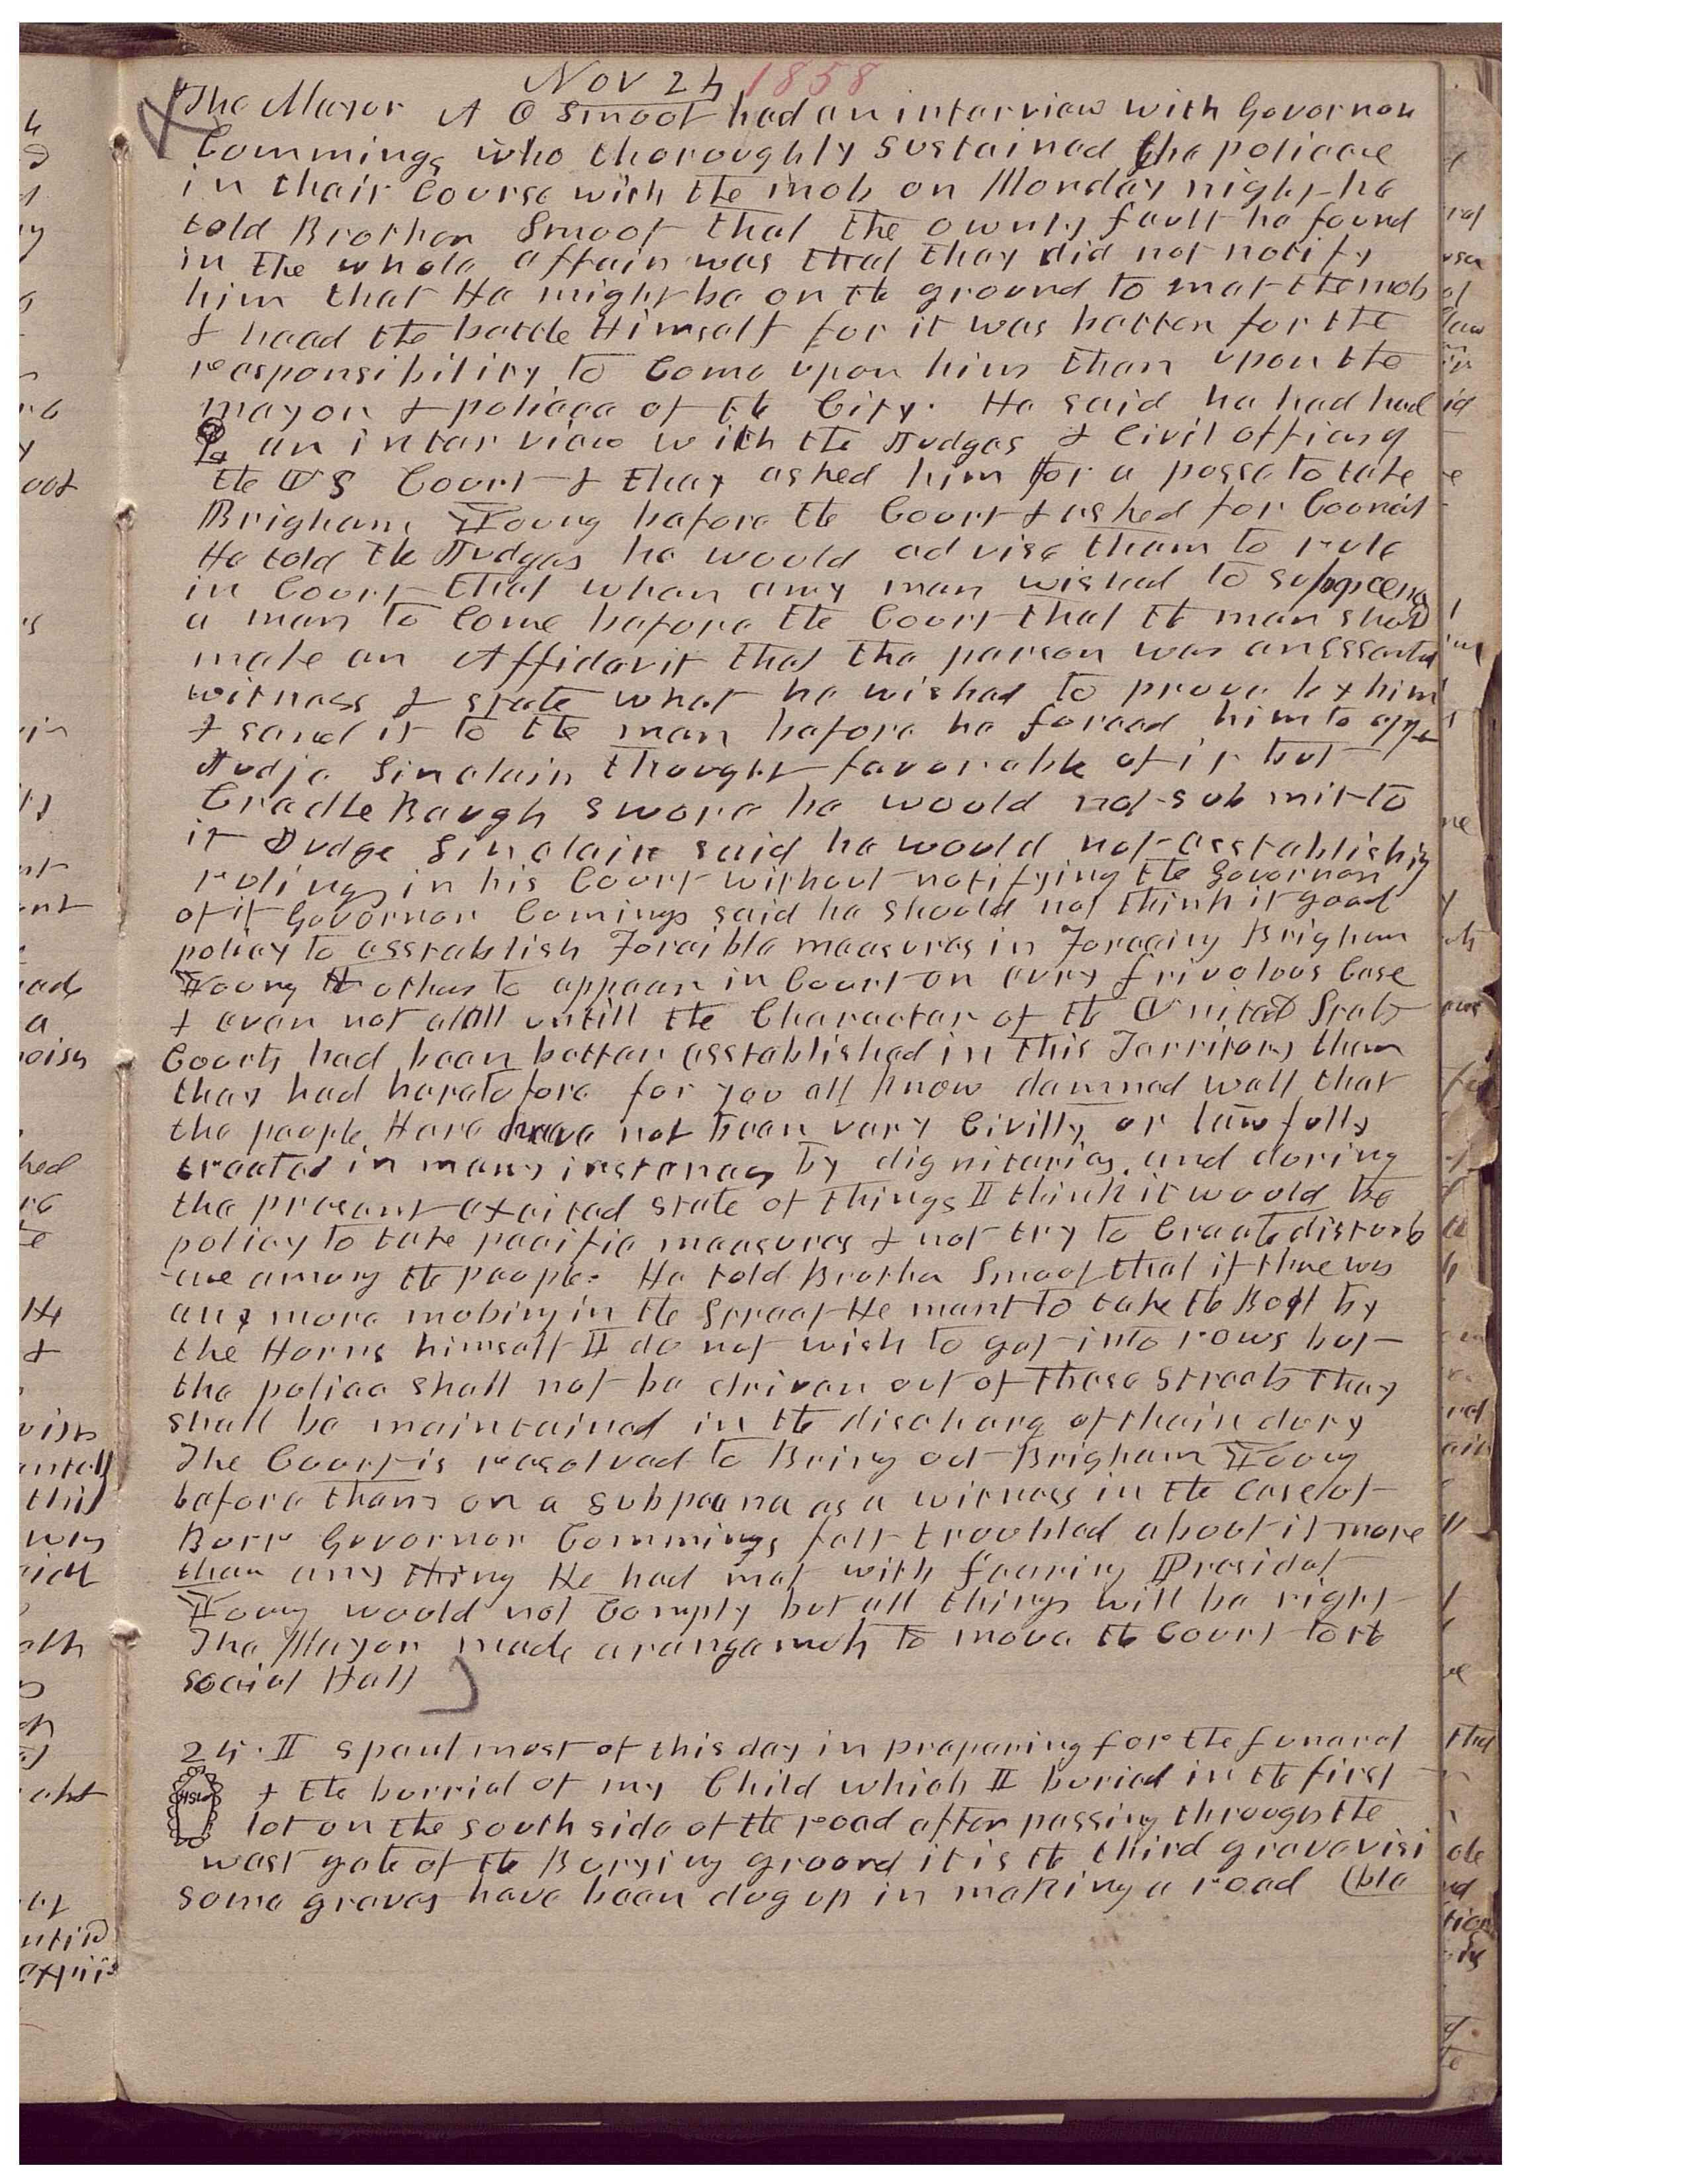 Nov 24 1858
The Mayor A O Smoot had an interview with Governor
Cummings who thoroughly sustained the policece
in their Course with the mob on Monday night he
told Brother Smoot that the ownly fault he found
in the whole affair was that they did not notify
him that He might be on the ground to met the mob
& head the battle Himself for it was better for the
responsibility to Come upon him than upon the
mayor & policee of the City. He said he had had
an interview with the Judges & Civil officers of
the US Court & they asked him for a posse to take
Brigham Young before the Court & asked for Council
He told the Judges he would advise them to rule
in Court that when any man wished to subpoena
a man to Come before the Court that the man should
make an Affidavit that the person was an essential
witness & state what he wished to prove by him
& send it to the man before he forced him to appe
Judje Sinclair thought favorable of it but
Cradlebaugh swore he would not submit to
it Judge Sinclair said he would not esstablish his
rulings in his Court without notifying the Governor
of it Governor Comings said he should not think it good
policy to esstablish Forcible measures in Forceing Brigham
Young & others to appear in Court on evry frivolous Case
& even not at all untill the Character of the United States
Courts had been better esstablished in this Territory than
they had heretofore for you all know damned well that
the people Here have not been very Civilly or lawfully
treated in many instances by dignitaries. and during
the present excited state of things I think it would be
policy to take pacific measures & not try to Create disturb
-ace among the people. He told Brother Smoot that if there was
any more mobing in the Street He ment to take the Bull by
the Horns himself I do not wish to get into rows but
the police shall not be driven out of these streets They
shall be maintained in the discharg of their duty
The Court is resolved to Bring out Brigham Young
before them on a subpoena as a witness in the Case of
Burr Governor Commings felt troubled about it more
than any thing He had met with fearing President
Young would not Comply but all things will be right
The Mayor made arangements to move the Court to the
social Hall
24. I spent most of this day in preparing for the funeral
& the burrial of my Child which I buried in the first
lot on the south side of the road after passing through the
west gate of the Burying ground it is the third grave visi
some graves have been dug up in making a road (ble